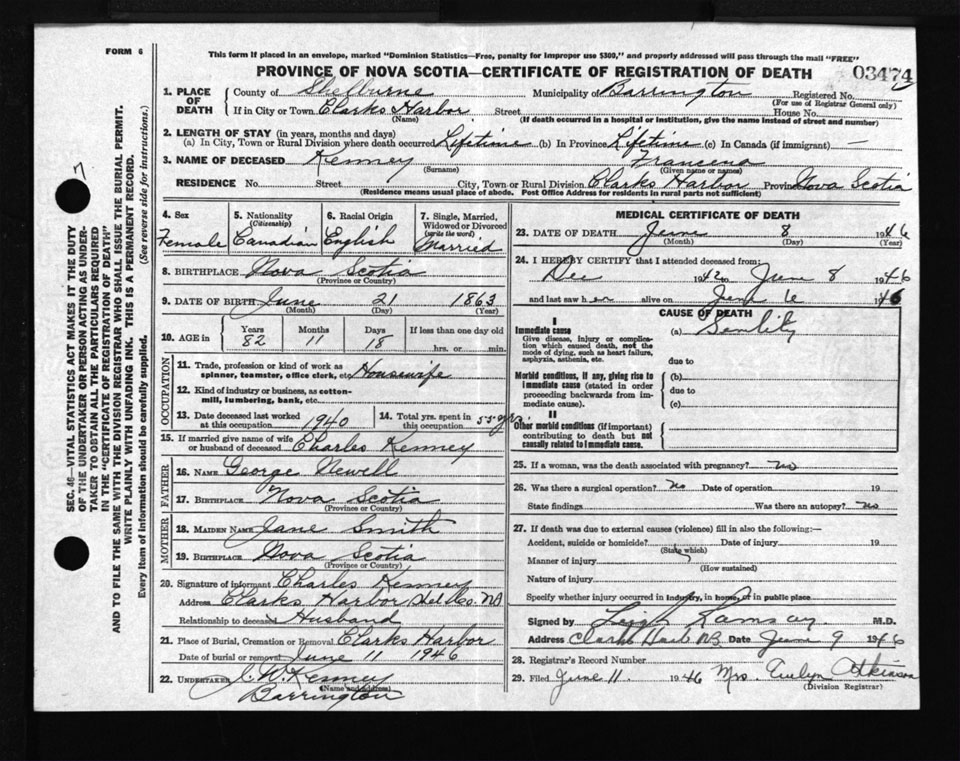 FORM 6
This form if placed in an envelope, marked "Dominion Statistics—Free, penalty for improper use $300," and properly addressed will pass through the mail "FREE"
PROVINCE OF NOVA SCOTIA—CERTIFICATE OF REGISTRATION OF DEATH
03474
1. PLACE OF DEATH { County of Shelburne Municipality of Barrington Registered No.
(For use of Registrar General only)
If in City or Town Clarks Harbor Street House No.
(Name) (If death occurred in a hospital or institution, give the name instead of street and number)
2. LENGTH OF STAY (in years, months and days)
(a) In City, Town or Rural Division where death occurred Lifetime (b) In Province Lifetime (c) In Canada (if immigrant) —
3. NAME OF DECEASED Kenney Francena
(Surname) (Given name or names)
RESIDENCE No. Street City, Town or Rural Division Clarks Harbor Province Nova Scotia
(Residence means usual place of abode. Post Office Address for residents in rural parts not sufficient)
4. Sex
Female
5. Nationality
(Citizenship)
Canadian
6. Racial Origin
English
7. Single, Married, Widowed or Divorced
(write the word)
Married
8. BIRTHPLACE Nova Scotia
(Province or Country)
9. DATE OF BIRTH June 21 1863
(Month) (Day) (Year)
10. AGE in { Years Months Days If less than one day old
82 11 18 hrs. or min.
OCCUPATION
11. Trade, profession or kind of work as
spinner, teamster, office clerk, etc. Housewife
12. Kind of industry or business, as cotton-
mill, lumbering, bank, etc.
13. Date deceased last worked
at this occupation 1940
14. Total yrs. spent in
this occupation 55 yrs.
15. If married give name of wife
or husband of deceased Charles Kenney
FATHER
16. NAME George Newell
17. BIRTHPLACE Nova Scotia
(Province or Country)
MOTHER
18. MAIDEN NAME Jane Smith
19. BIRTHPLACE Nova Scotia
(Province or Country)
20. Signature of informant Charles Kenney
Address Clarks Harbor Shel Co. NS
Relationship to deceased Husband
21. Place of Burial, Cremation or Removal Clarks Harbor
Date of burial or removal June 11 1946
22. UNDERTAKER J. W. Kenney
(Name and address)
Barrington
MEDICAL CERTIFICATE OF DEATH
23. DATE OF DEATH June 8 1946
(Month) (Day) (Year)
24. I HEREBY CERTIFY that I attended deceased from:
Dec 1942 to June 8 1946
and last saw her alive on June 6 1946
CAUSE OF DEATH
I
Immediate cause
Give disease, injury or complication which caused death, not the mode of dying, such as heart failure, asphyxia, asthenia, etc.
(a) Senility
due to
Morbid conditions, if any, giving rise to immediate cause (stated in order proceeding backwards from immediate cause).
(b)
due to
(c)
II
Other morbid conditions (if important) contributing to death but not causally related to immediate cause.
25. If a woman, was the death associated with pregnancy? no
26. Was there a surgical operation? no Date of operation 19
State findings Was there an autopsy? no
27. If death was due to external causes (violence) fill in also the following:—
Accident, suicide or homicide? Date of injury 19
(State which)
Manner of injury
(How sustained)
Nature of injury
Specify whether injury occurred in industry, in home, or in public place
Signed by Leigh Ramsay M.D.
Address Clarks Harb NS Date June 9 1946
28. Registrar's Record Number
29. Filed June 11 1946 Mrs. Evelyn Atkinson
(Division Registrar)
7
SEC. 46—VITAL STATISTICS ACT MAKES IT THE DUTY
OF THE UNDERTAKER OR PERSON ACTING AS UNDER-
TAKER TO OBTAIN ALL THE PARTICULARS REQUIRED
IN THE "CERTIFICATE OF REGISTRATION OF DEATH"
AND TO FILE THE SAME WITH THE DIVISION REGISTRAR WHO SHALL ISSUE THE BURIAL PERMIT.
WRITE PLAINLY WITH UNFADING INK. THIS IS A PERMANENT RECORD.
Every item of information should be carefully supplied. (See reverse side for instructions.)